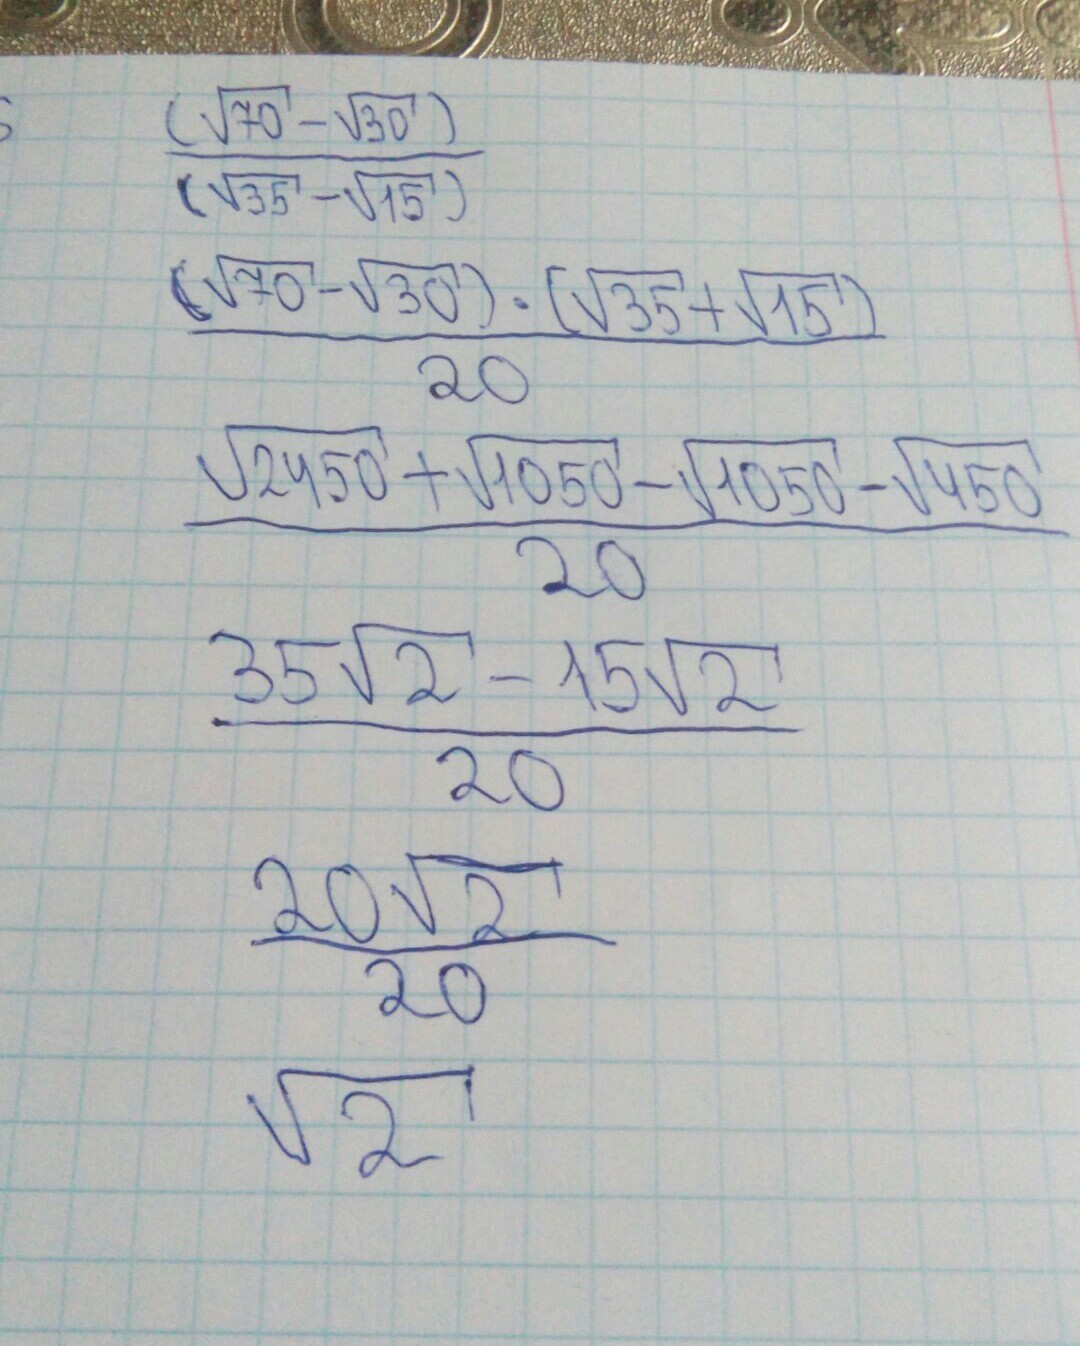 (√70 - √30)
(√35 - √15)
(√70 - √30) · (√35 + √15)
20
√2450 + √1050 - √1050 - √450
20
35√2 - 15√2
20
20√2
20
√2